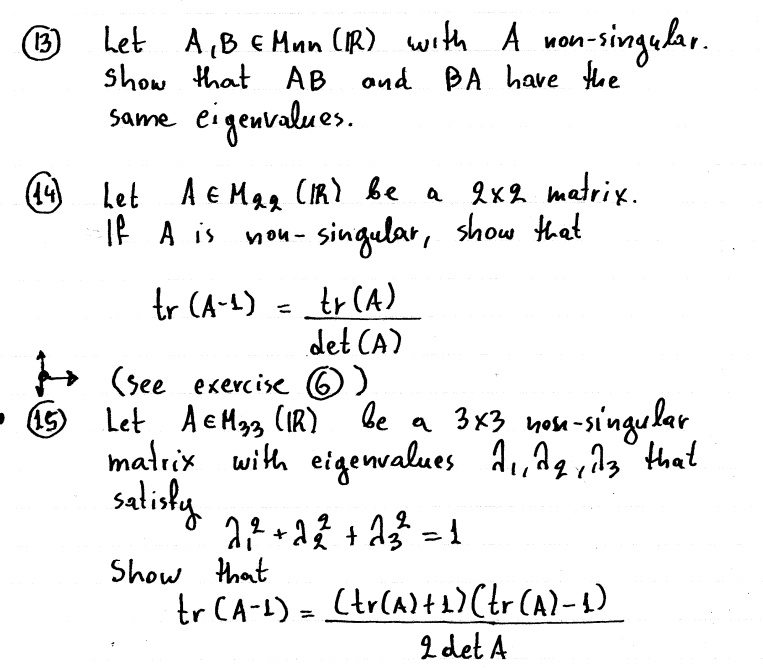 (13) Let A,B ∈ Mnn (ℝ) with A non-singular.
Show that AB and BA have the
same eigenvalues.
(14) Let A ∈ M22 (ℝ) be a 2x2 matrix.
If A is non-singular, show that
tr (A-1) = tr(A) / det(A)
(see exercise (6))
(15) Let A∈M33 (ℝ) be a 3x3 non-singular
matrix with eigenvalues λ1, λ2, λ3 that
satisfy
λ1² + λ2² + λ3² = 1
Show that
tr (A-1) = (tr(A)+1)(tr(A)-1) / 2 det A